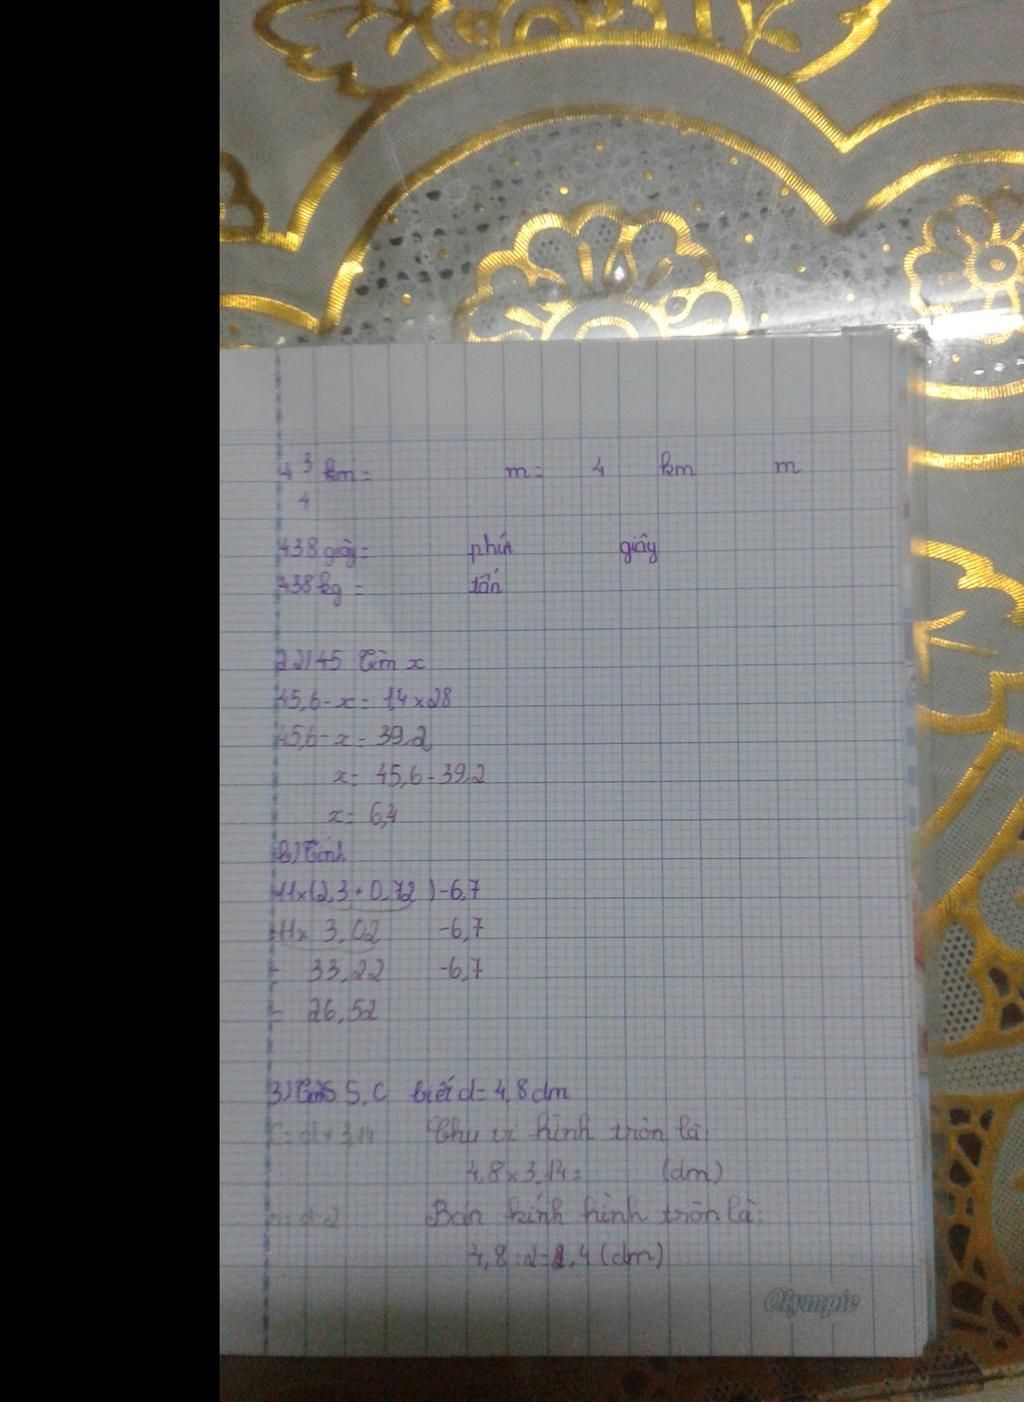 4 3/4 km = m = 4 km m
438 giây = phút giây
438kg = tấn
Tìm x
45,6 - x = 1,4 x 28
45,6 - x = 39,2
x = 45,6 - 39,2
x = 6,4
b) Tính
11 x (2,3 + 0,72) - 6,7
11 x 3,02 - 6,7
= 33,22 - 6,7
= 26,52
3) S, C biết d = 4,8 dm
C = d x 3,14 Chu vi hình tròn là
4,8 x 3,14 = (dm)
Bán kính hình tròn là:
4,8 : 2 = 2,4 (dm)
Olympic